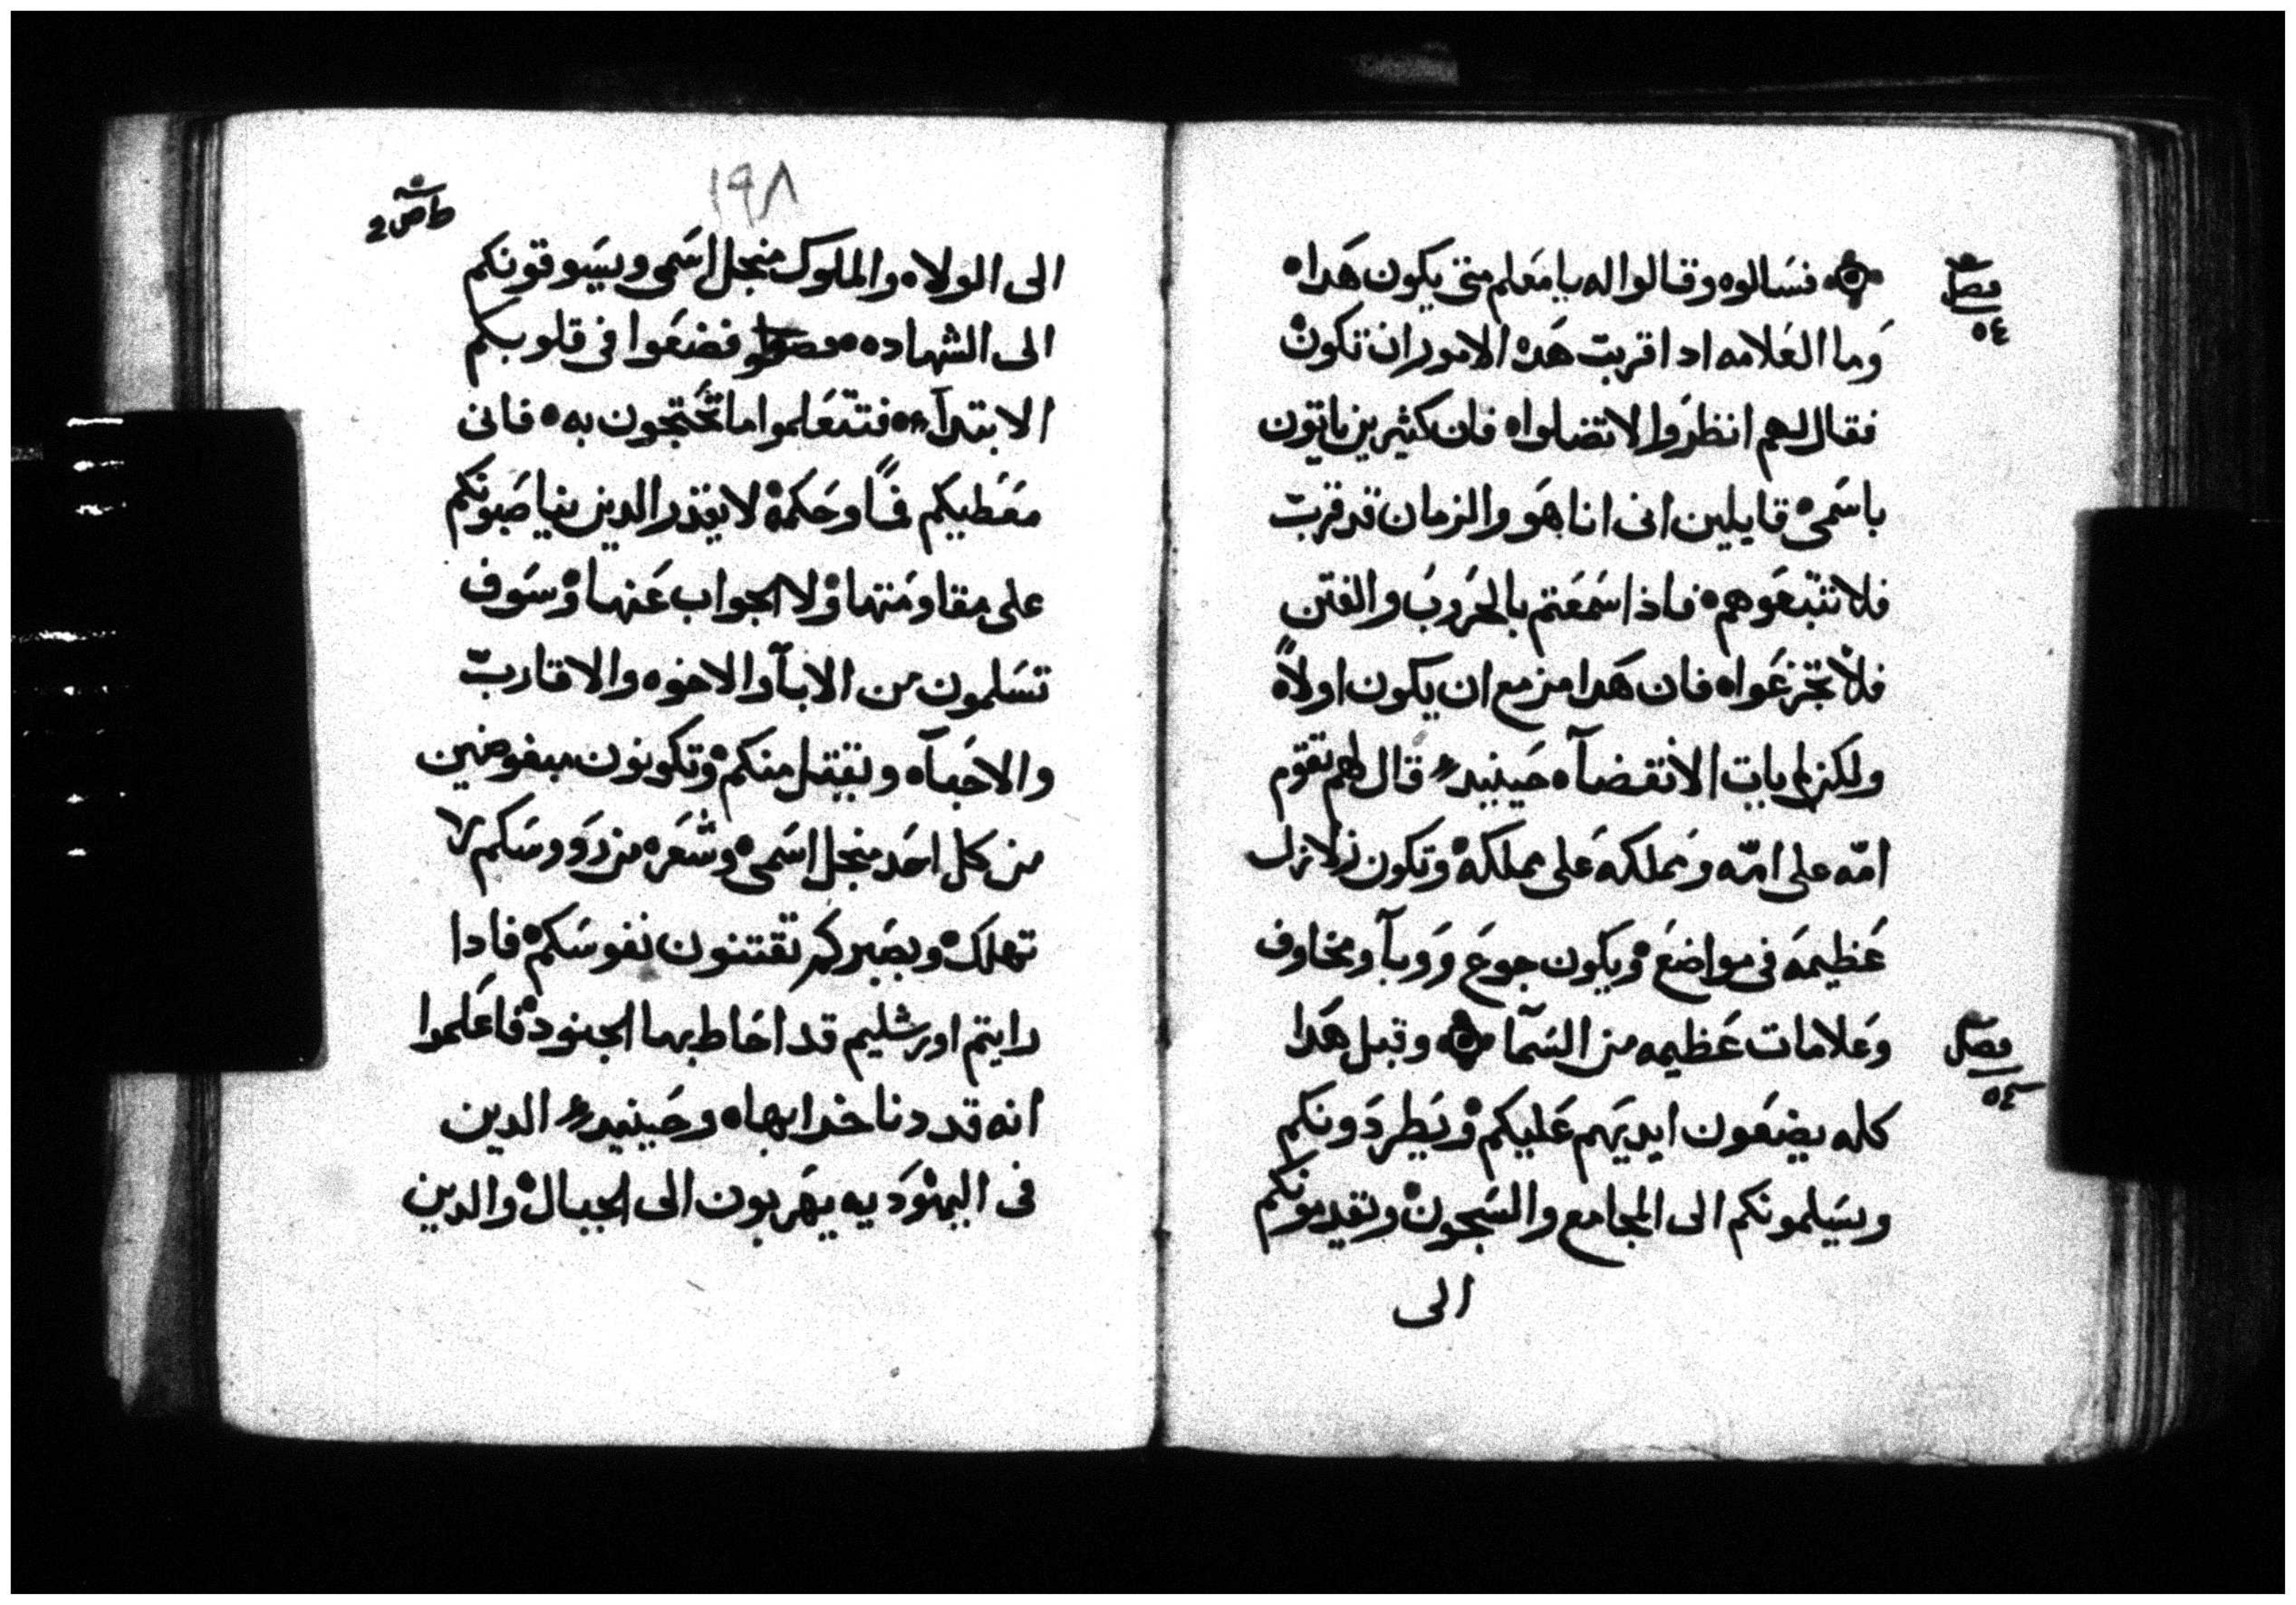 فصل
٥٤
فسالوه وقالوا له يا معلم متى يكون هدا ه
وما العلامه ادا قربت هده الامور ان تكون
فقال لهم انظروا لا تضلوا ه فان كثيرين ياتون
باسمى قايلين انى انا هو والزمان قد قرب
فلا تتبعوهم ه فاذا سمعتم بالحروب والفتن
فلا تجزعوا ه فان هدا مزمع ان يكون اولاً ه
ولكن لم يات الانقضآ ه حينيد قال لهم تقوم
امّه على امّه ومملكه على مملكه وتكون زلازل
عظيمه فى مواضع ويكون جوع ووبآ ومخاوف
وعلامات عظيمه من السمآ ه وقبل هدا
فصل
كله يضعون ايديهم عليكم ويطردونكم
ويسلمونكم الى المجامع والسجون وتقدمونكم
الى
١٩٨
الى الولاه والملوك منجل اسمى ويسوقونكم
الى الشهاده ه فضعوا فى قلوبكم
الابتدآ ه فتتعلموا ما تحتجون به ه فانى
معطيكم فماً وحكمة لا يقدر الدين يناصبونكم
على مقاومتها ولا الجواب عنها وسوف
تسلمون من الابآ والاخوه والاقارب
والاحبآ ه ويقتل منكم وتكونون مبغوضين
من كل احد منجل اسمى وشعره من رووسكم لا
تهلك وبصبركم تقتنون نفوسكم فادا
رايتم اورشليم قد احاط بها الجنود فاعلموا
انه قد دنا خرابها ه وحينيد الدين
فى اليهوديه يهربون الى الجبال والدين